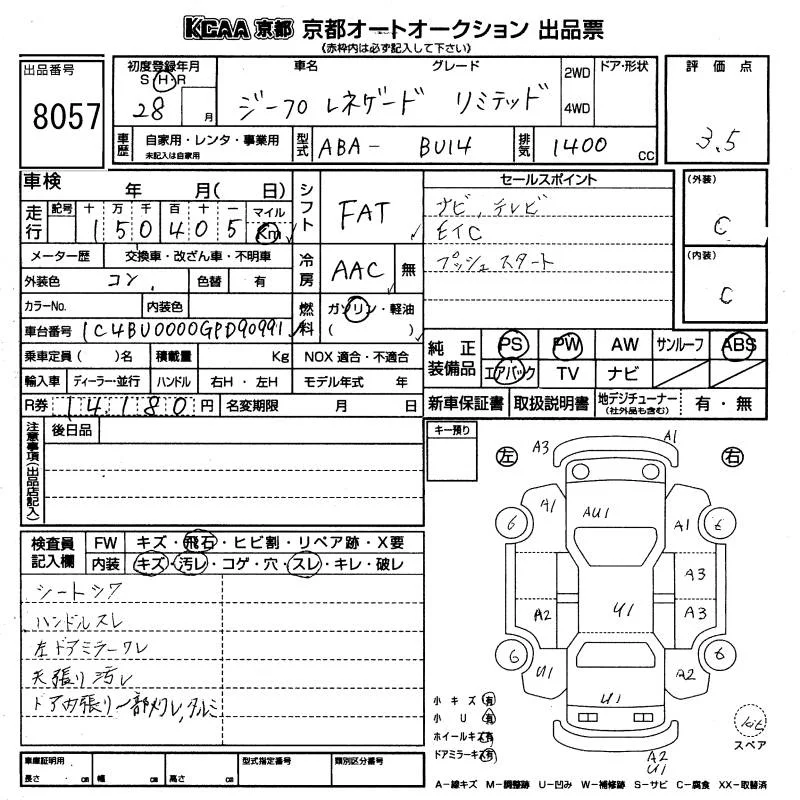 KCAA 京都 京都オートオークション 出品票
(赤枠内は必ず記入して下さい)
出品番号
8057
初度登録年月
S・H・R
28 月
車名 グレード
ジープ レネゲード リミテッド
2WD
4WD
ドア・形状
評価点
3.5
車歴
自家用・レンタ・事業用
未記入は自家用
型式
ABA- BU14
排気
1400 cc
車検 年 月( 日)
走行
記号 十 万 千 百 十 一 マイル
1 5 0 4 0 5 Km
メーター歴 交換車・改ざん車・不明車
外装色 コン 色替 有
カラーNo. 内装色
車台番号 1C4BU0000GPD90991
乗車定員( )名 積載量 Kg NOX 適合・不適合
輸入車 ディーラー・並行 ハンドル 右H・左H モデル年式 年
R券 14,180円 名変期限 月 日
シフト FAT
冷房 AAC 無
燃料 ガソリン・軽油
( )
セールスポイント
ナビ、テレビ
ETC
プッシュスタート
(外装)
C
(内装)
C
純正装備品
PS PW AW サンルーフ ABS
エアバック TV ナビ
新車保証書 取扱説明書 地デジチューナー(社外品も含む) 有・無
注意事項(出品店記入)
後日品
キー預り
左 右
A3 A1
A1 AU1 A1
6 6
A3
A2 U1 A3
6 6
U1 A2
U1
A2
U1
小キズ 有
小U 有
ホイールキズ 有
ドアミラーキズ 有
kit
スペア
検査員記入欄
FW キズ・飛石・ヒビ割・リペア跡・X要
内装 キズ・汚レ・コゲ・穴・スレ・キレ・破レ
シートシワ
ハンドルスレ
左ドアミラーワレ
天張り汚レ
ドア内張り一部メクレ,タルミ
車庫証明用
長さ cm 幅 cm 高さ cm
型式指定番号
類別区分番号
A-線キズ M-調整跡 U-凹み W-補修跡 S-サビ C-腐食 XX-取替済